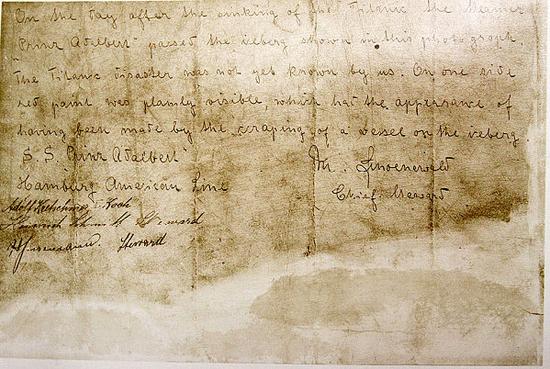 On the day after the sinking of the Titanic, the steamer
"Prinz Adalbert" passed the iceberg shown in this photograph.
The Titanic disaster was not yet known by us. On one side
red paint was plainly visible, which had the appearance of
having been made by the scraping of a vessel on the iceberg.
S. S. "Prinz Adalbert"
M. Linoenewald
Hamburg American Line
Chief Steward
I. Koch
Steward
Steward